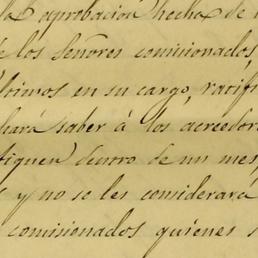 la aprobacion hecha de l
de los Señores comisionados
ltimos en su cargo, ratifi
hará saber á los acreedor
tiquen dentro de un mes
s y no se les considerará
comisionados quienes s